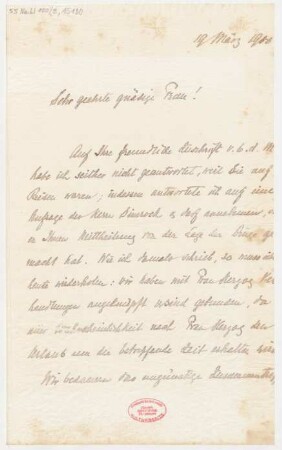 19 März 1900
Sehr geehrte gnädige Frau!
Auf Ihre freundliche Zuschrift v. 6. d. M.
habe ich seither nicht geantwortet, weil Sie auf
Reisen waren; indessen antwortete ich auf eine
Anfrage des Herrn & darf annehmen,
er Ihnen Mittheilung von der Lage der Dinge
macht hat. Wie ich damals schrieb, so muss ich
heute wiederholen: wir haben mit Frau Herzog
handlungen angeknüpft & sind gebunden, da
aller Wahrscheinlichkeit nach Frau Herzog den
Urlaub um die betreffende Zeit erhalten wird
Wir bedauern das ungünstige